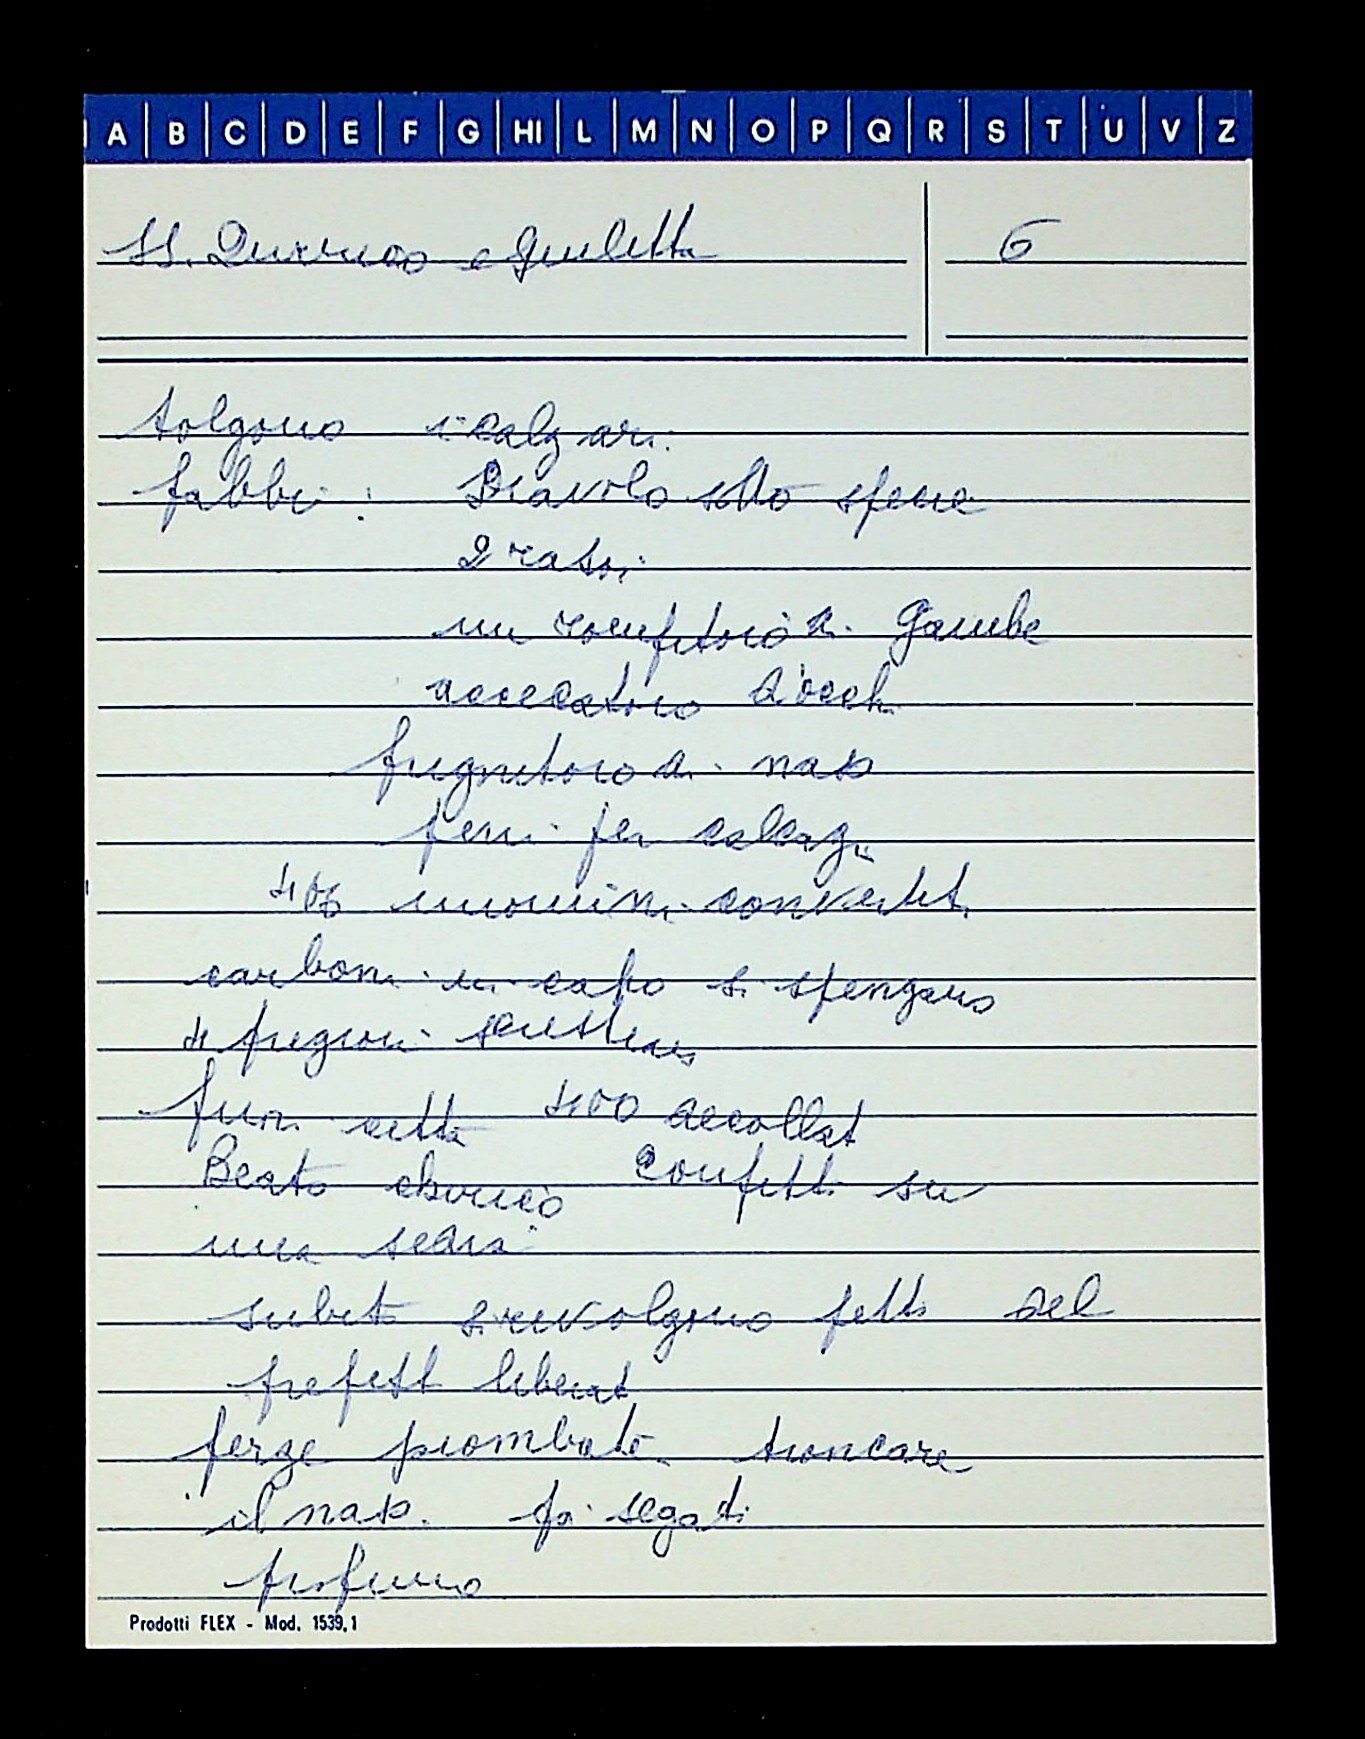 A B C D E F G HI L M N O P Q R S T U V Z
SS. Quirico e Giuletta 6
tolgono i calzari
fabbri: Diavolo sotto specie
2 rasoi
un rompitoio di Gambe
accecatoio d'occhi
di naso
ferri per calcagni
400 uomini convertiti
carboni in capo si spengono
4 prigioni
funi città 400 decollati
Beato confetti su
una sedia
subito si rivolgono fatti del
prefetto liberati
ferze piombate troncare
il naso. fa segati
profumo
Prodotti FLEX - Mod. 1539,1